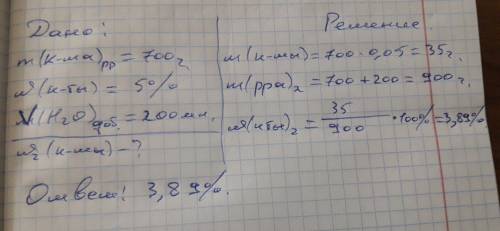 Дано:
m(к-та)рр = 700г
ω(к-ты) = 5%
V(H₂O)доб. = 200мл.
ω₂(к-ты) - ?
Решение
m(к-ты) = 700 · 0,05 = 35г.
m(рра)₂ = 700 + 200 = 900г.
ω(к-ты)₂ = 35/900 · 100% = 3,89%
Ответ: 3,89%.